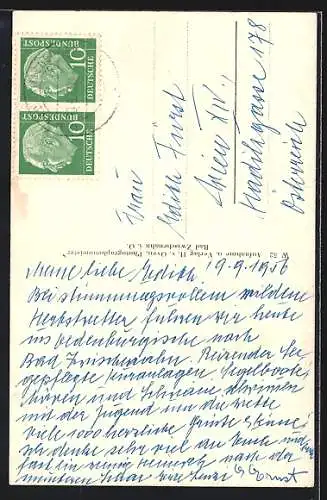 DEUTSCHE
BUNDESPOST
10
DEUTSCHE
BUNDESPOST
10
Frau
Edith Fürst
Wien XV.,
Hadikgasse 178
Österreich
W 52 Aufnahme u. Verlag H. v. Oven, Photographenmeister
Bad Zwischenahn i. O.
Meine liebe Edith! 9.9.1956
Bei stimmungsvollem mildem
Herbstwetter fuhren wir heute
ins oldenburgische nach
Bad Zwischenahn. Reizender See
gepflegte Kuranlagen Segelboote
Möven und Schwäne
mit der Jugend um die Wette
Viele 1000 herzliche Grüße & Küsse!
Ich denke sehr viel an Euch und
fast ein wenig Heimweh nach der
Ernst